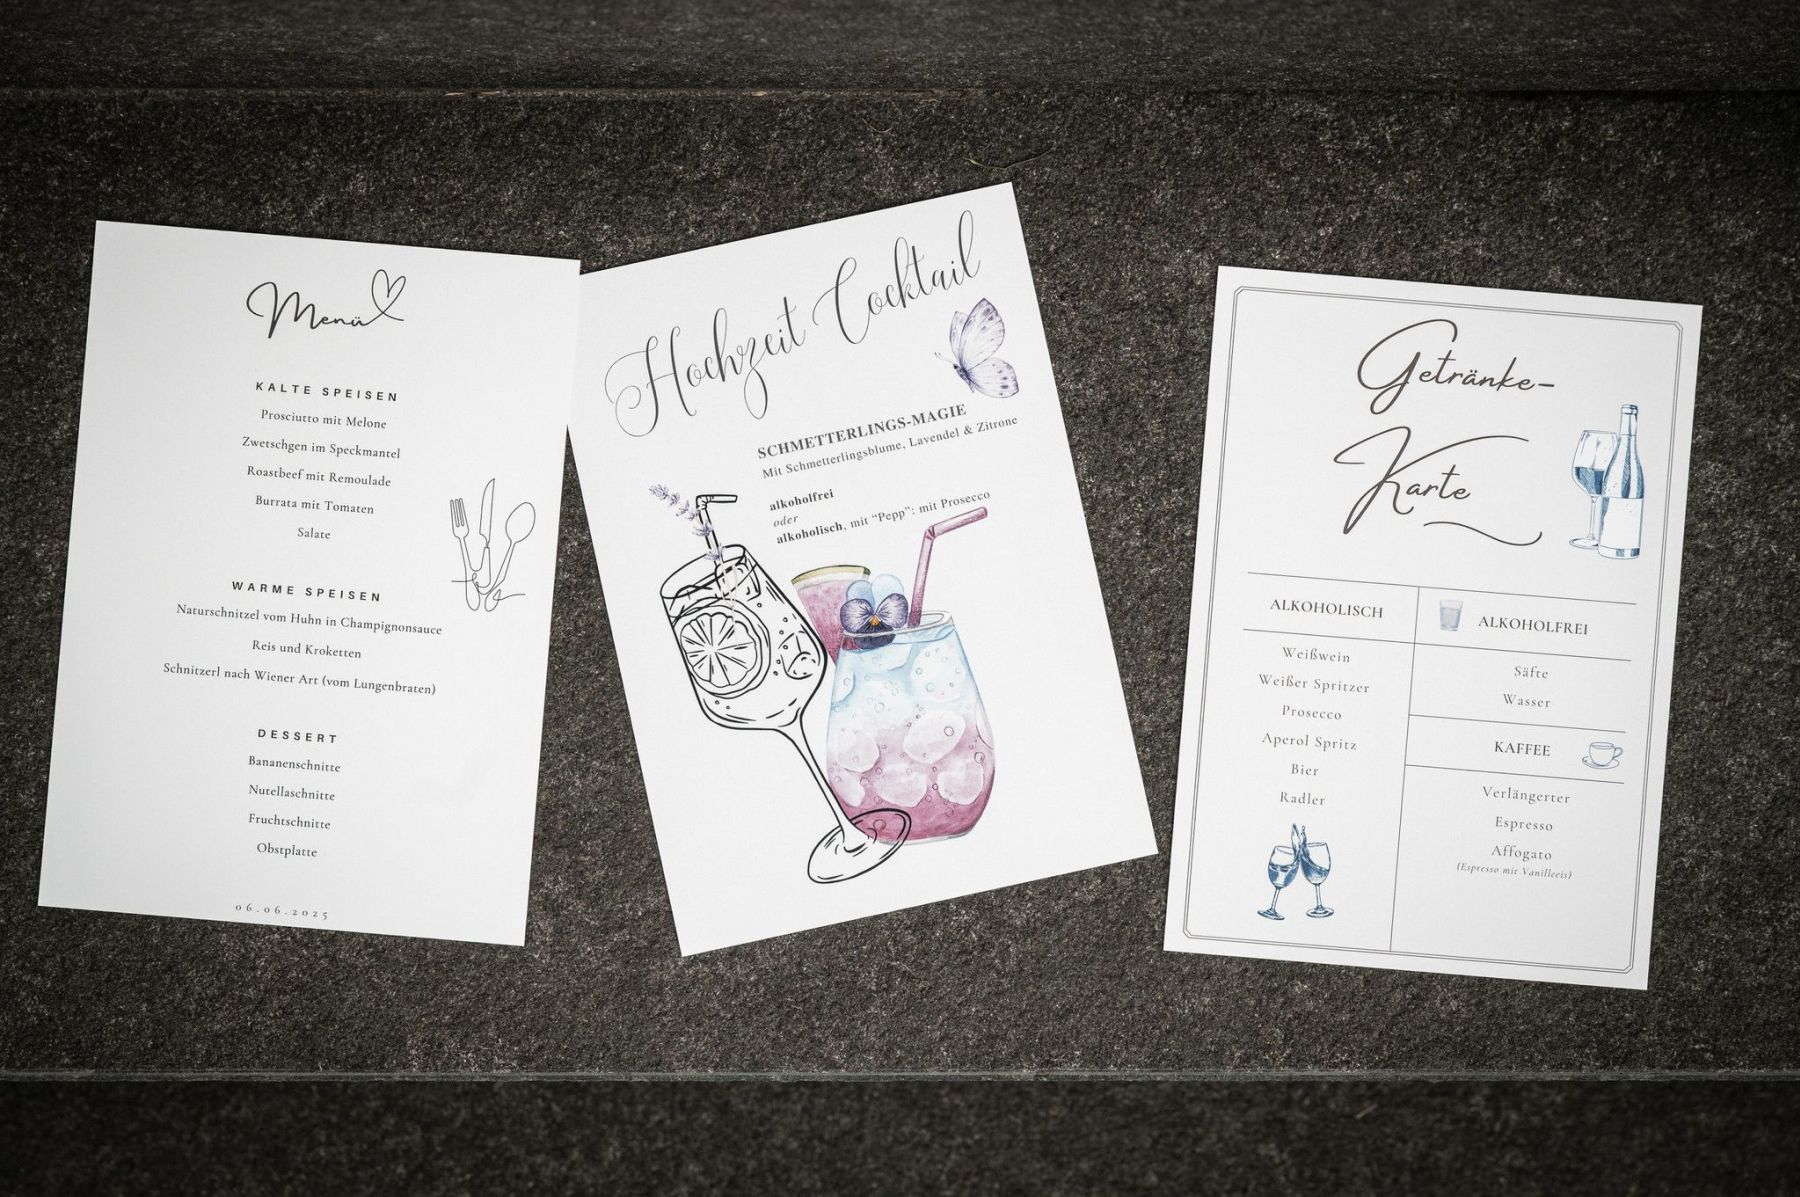 Menü
KALTE SPEISEN
Prosciutto mit Melone
Zwetschgen im Speckmantel
Roastbeef mit Remoulade
Burrata mit Tomaten
Salate
WARME SPEISEN
Naturschnitzel vom Huhn in Champignonsauce
Reis und Kroketten
Schnitzerl nach Wiener Art (vom Lungenbraten)
DESSERT
Bananenschnitte
Nutellaschnitte
Fruchtschnitte
Obstplatte
06.06.2025
Hochzeit Cocktail
SCHMETTERLINGS-MAGIE
Mit Schmetterlingsblume, Lavendel & Zitrone
alkoholfrei
oder
alkoholisch, mit “Pepp”: mit Prosecco
Getränke-
Karte
ALKOHOLISCH
Weißwein
Weißer Spritzer
Prosecco
Aperol Spritz
Bier
Radler
ALKOHOLFREI
Säfte
Wasser
KAFFEE
Verlängerter
Espresso
Affogato
(Espresso mit Vanilleeis)